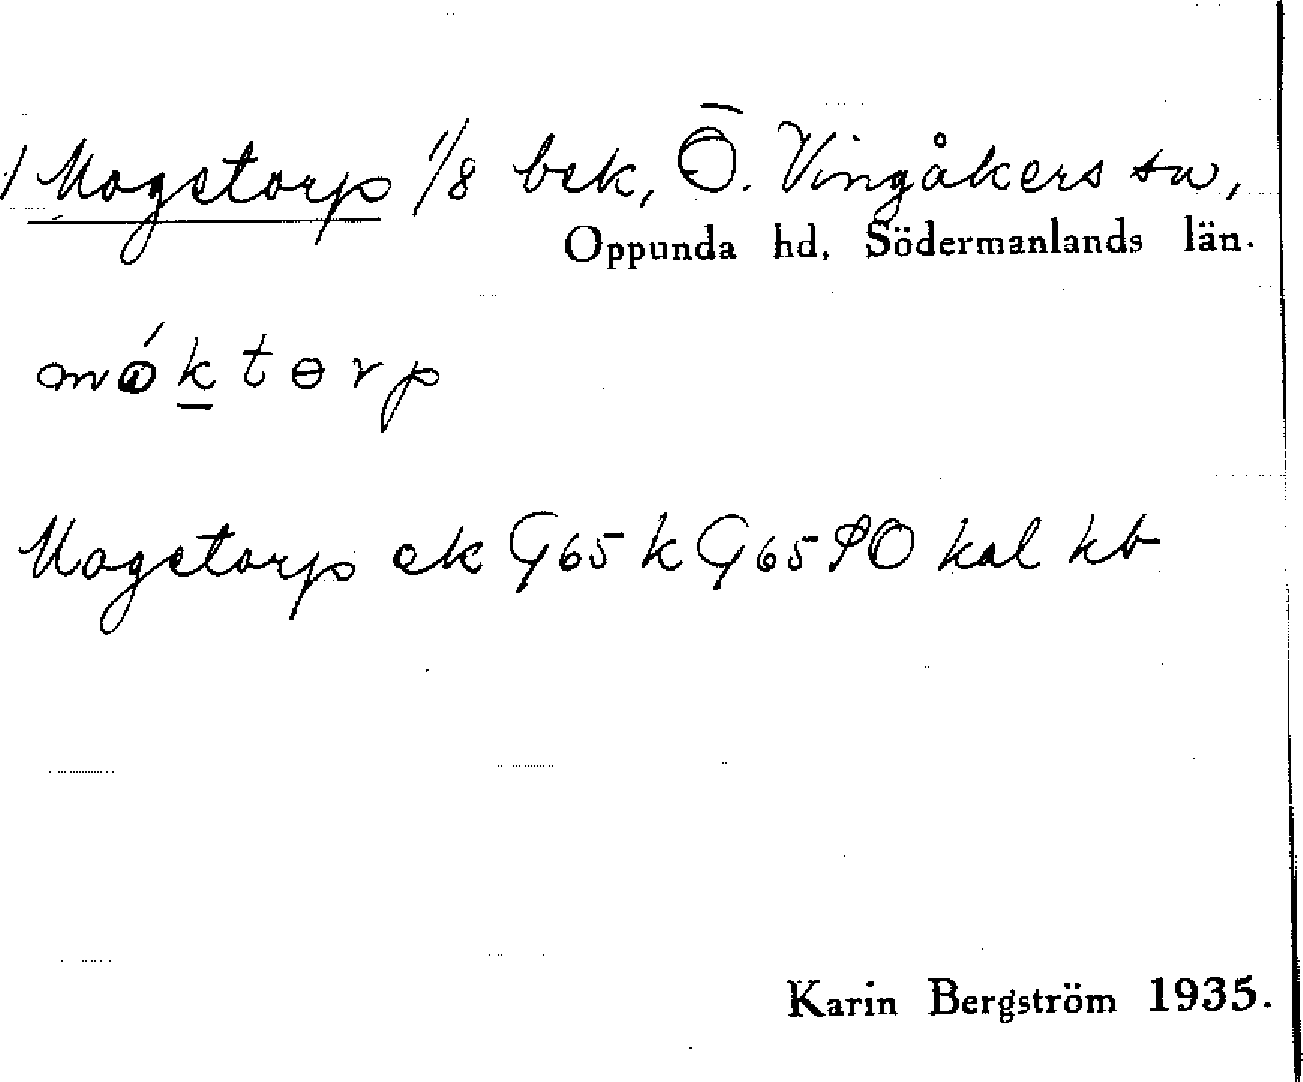 Mogetorp 1/8 bek, Ö. Vingåkers sn,
Oppunda hd, Södermanlands län.
móktorp
Mogetorp ek G65 k G65 PO kal kb
Karin Bergström 1935.